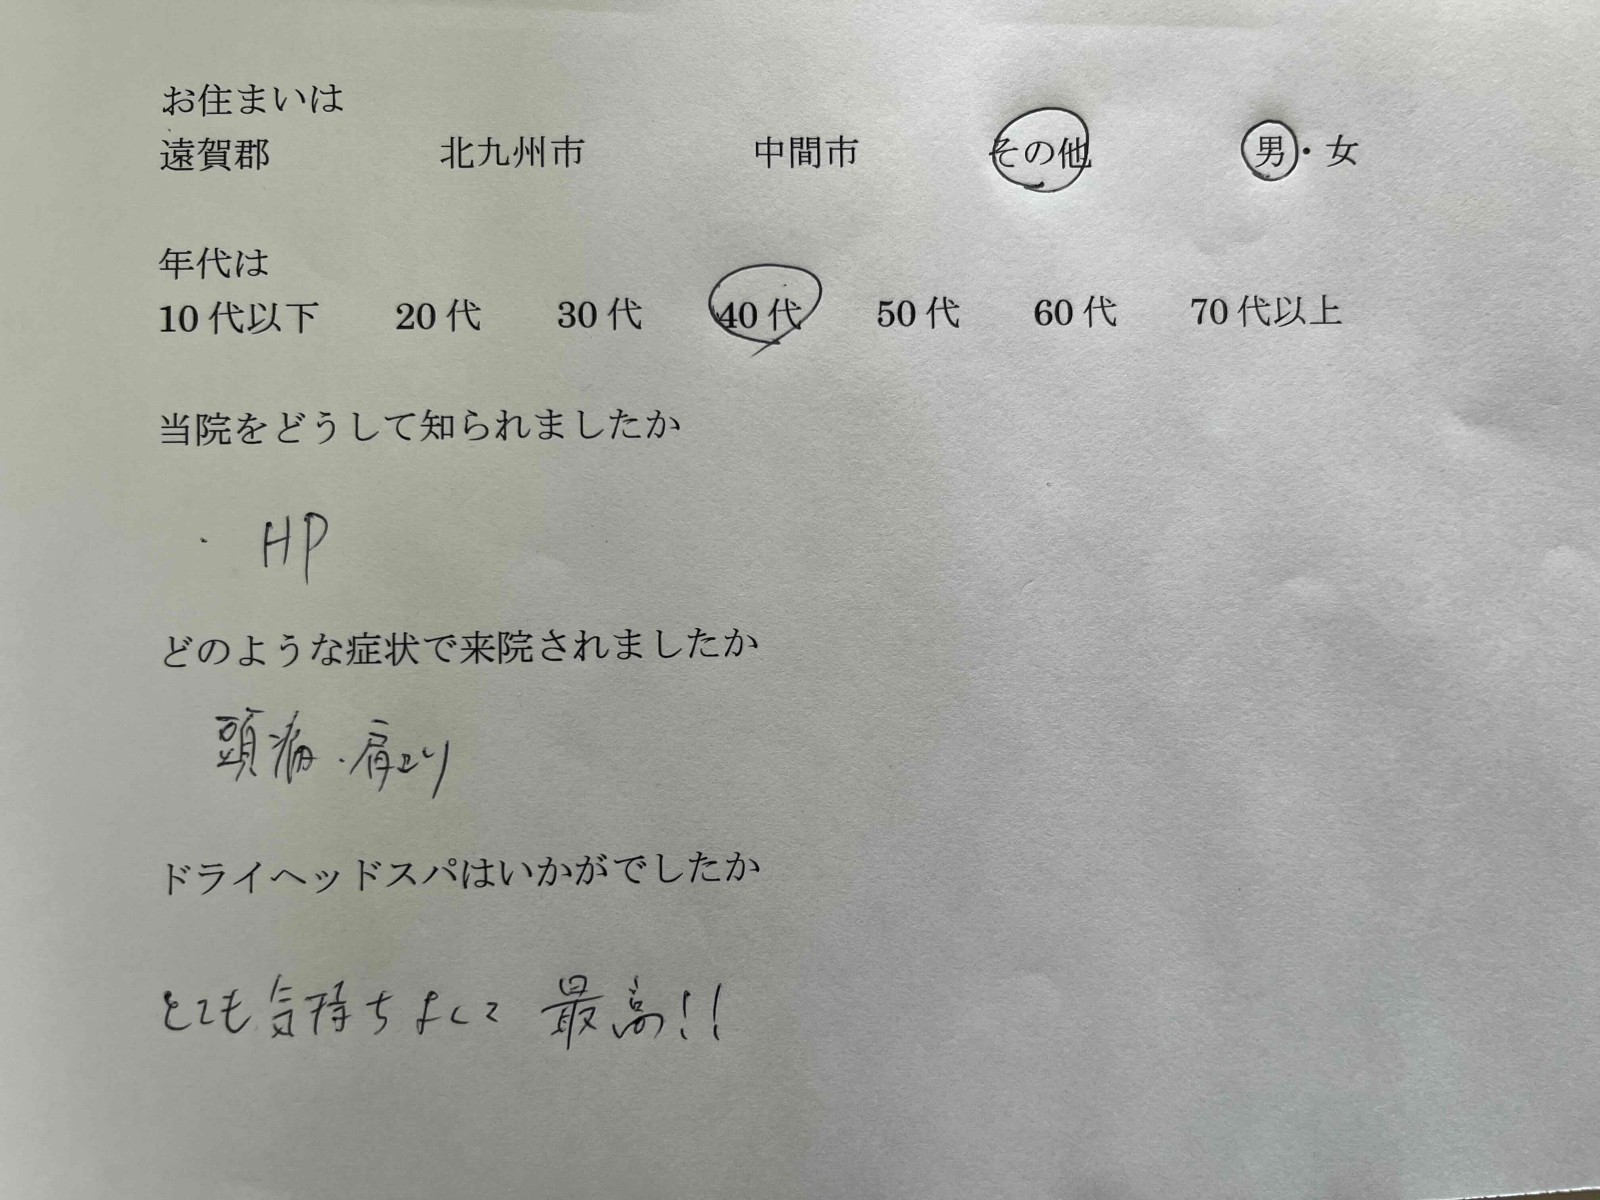 お住まいは
遠賀郡 北九州市 中間市 その他 男・女
年代は
10代以下 20代 30代 40代 50代 60代 70代以上
当院をどうして知られましたか
・ HP
どのような症状で来院されましたか
頭痛・肩こり
ドライヘッドスパはいかがでしたか
とても気持ちよくて 最高!!